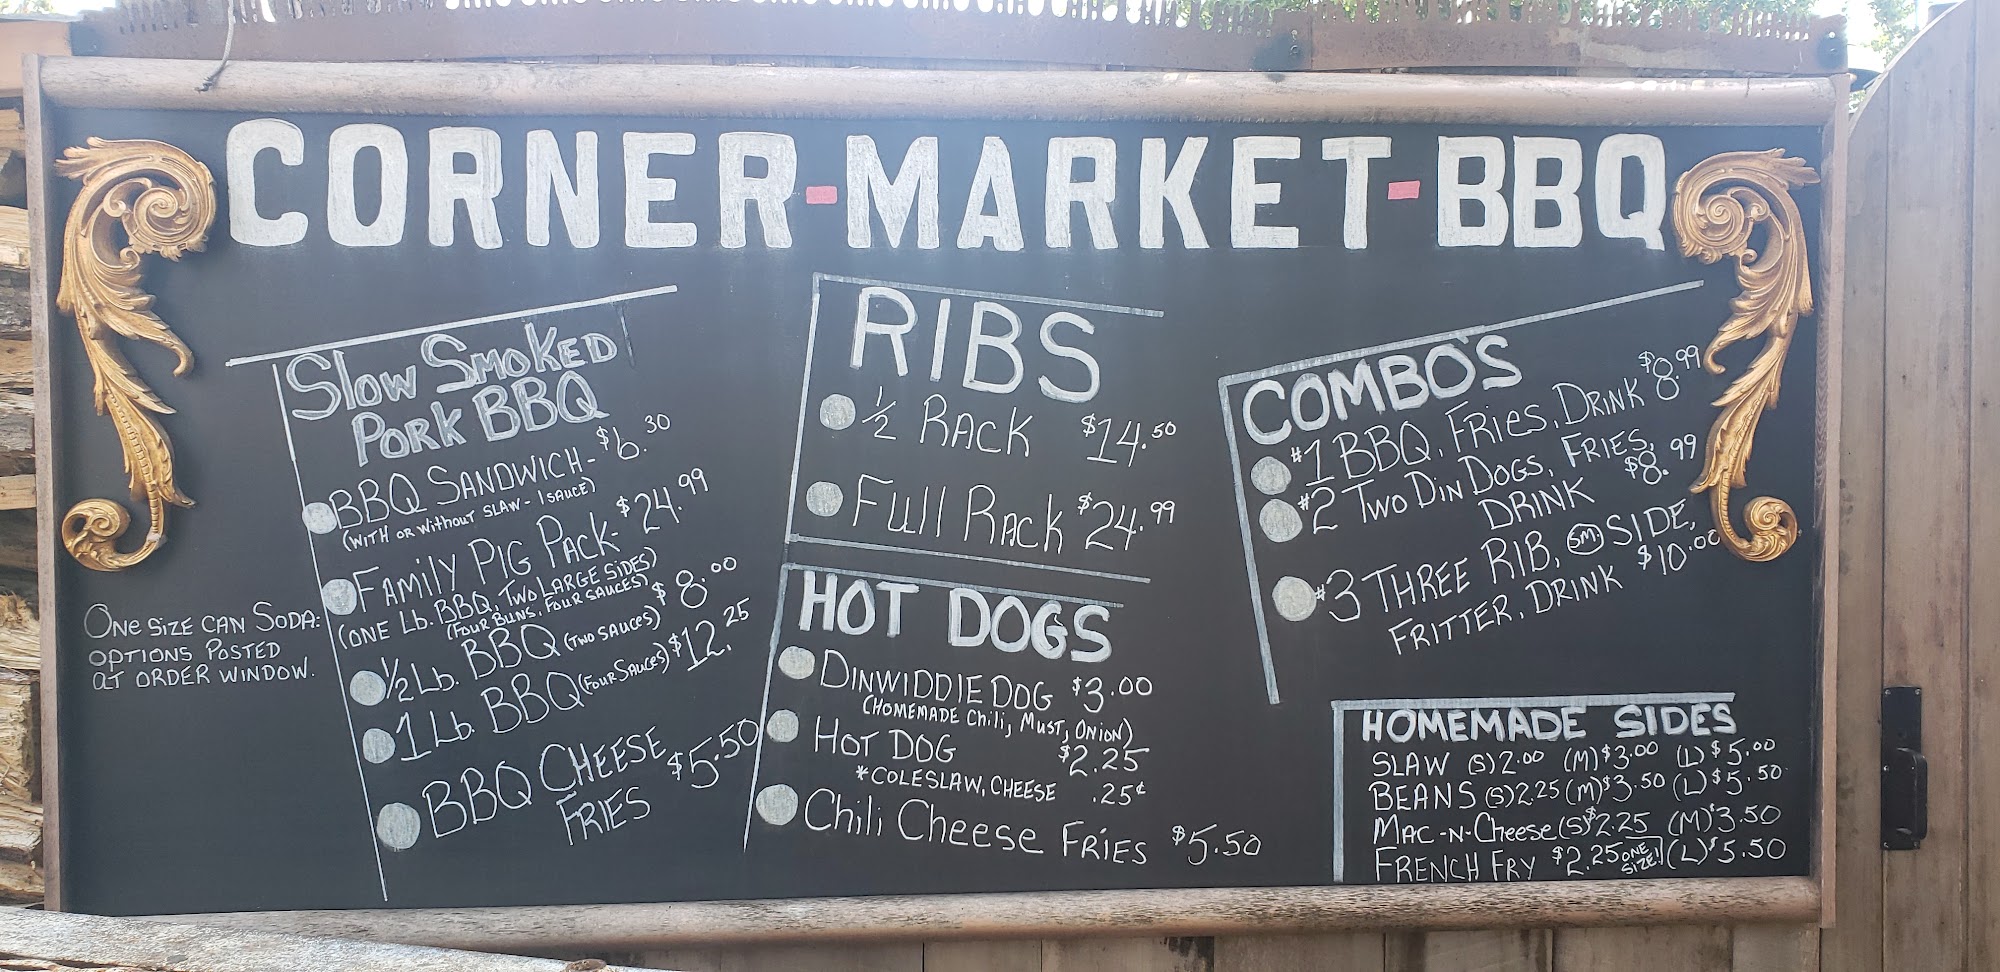 CORNER-MARKET-BBQ
Slow Smoked
Pork BBQ
BBQ SANDWICH- $6.30
(WITH OR WITHOUT SLAW- 1 SAUCE)
FAMILY PIG PACK- $24.99
(ONE Lb. BBQ, TWO LARGE SIDES)
(FOUR BUNS, FOUR SAUCES)
1/2 Lb. BBQ (TWO SAUCES) $8.00
1 Lb. BBQ (FOUR SAUCES) $12.25
BBQ CHEESE
FRIES $5.50
ONE SIZE CAN SODA:
OPTIONS POSTED
AT ORDER WINDOW.
RIBS
1/2 RACK $14.50
FULL RACK $24.99
HOT DOGS
DINWIDDIE DOG $3.00
(HOMEMADE Chili, MUST, ONION)
HOT DOG $2.25
*COLESLAW, CHEESE .25¢
Chili Cheese FRIES $5.50
COMBO'S
#1 BBQ, FRIES, DRINK $8.99
#2 TWO DIN DOGS, FRIES,
DRINK $8.99
#3 THREE RIB, SM. SIDE,
FRITTER, DRINK $10.00
HOMEMADE SIDES
SLAW (S) 2.00 (M) $3.00 (L) $5.00
BEANS (S) 2.25 (M) $3.50 (L) $5.50
MAC-N-Cheese (S) $2.25 (M) $3.50
FRENCH FRY $2.25 ONE SIZE! (L) $5.50